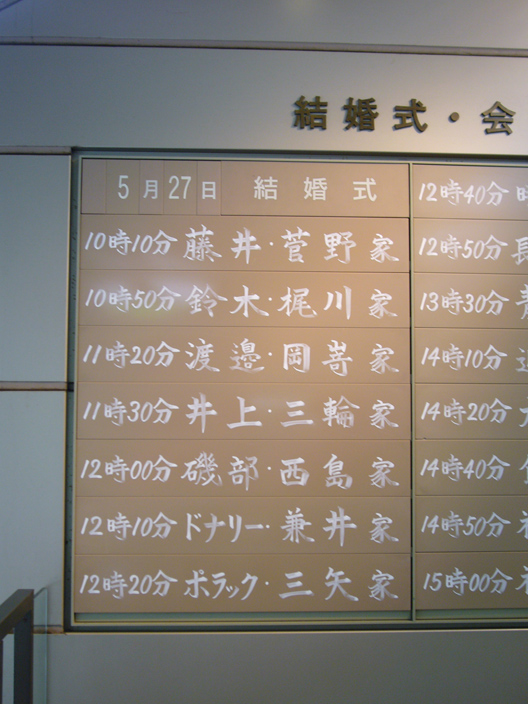 結婚式・会
5月27日 結婚式
10時10分 藤井・菅野家
10時50分 鈴木・梶川家
11時20分 渡邉・岡嵜家
11時30分 井上・三輪家
12時00分 磯部・西島家
12時10分 ドナリー・兼井家
12時20分 ポラック・三矢家
12時40分
12時50分
13時30分
14時10分
14時20分
14時40分
14時50分
15時00分